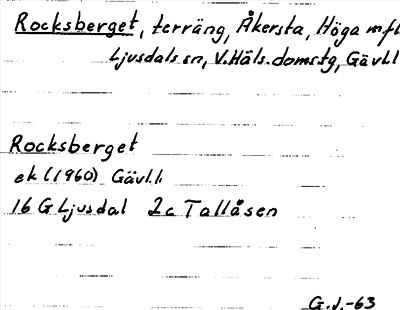 Rocksberget, terräng, Åkersta, Höga m fl
Ljusdals sn, V. Häls. domstg, Gävl.l
Rocksberget
ek (1960) Gävl.l.
16 G Ljusdal 2c Tallåsen
G.J.-63